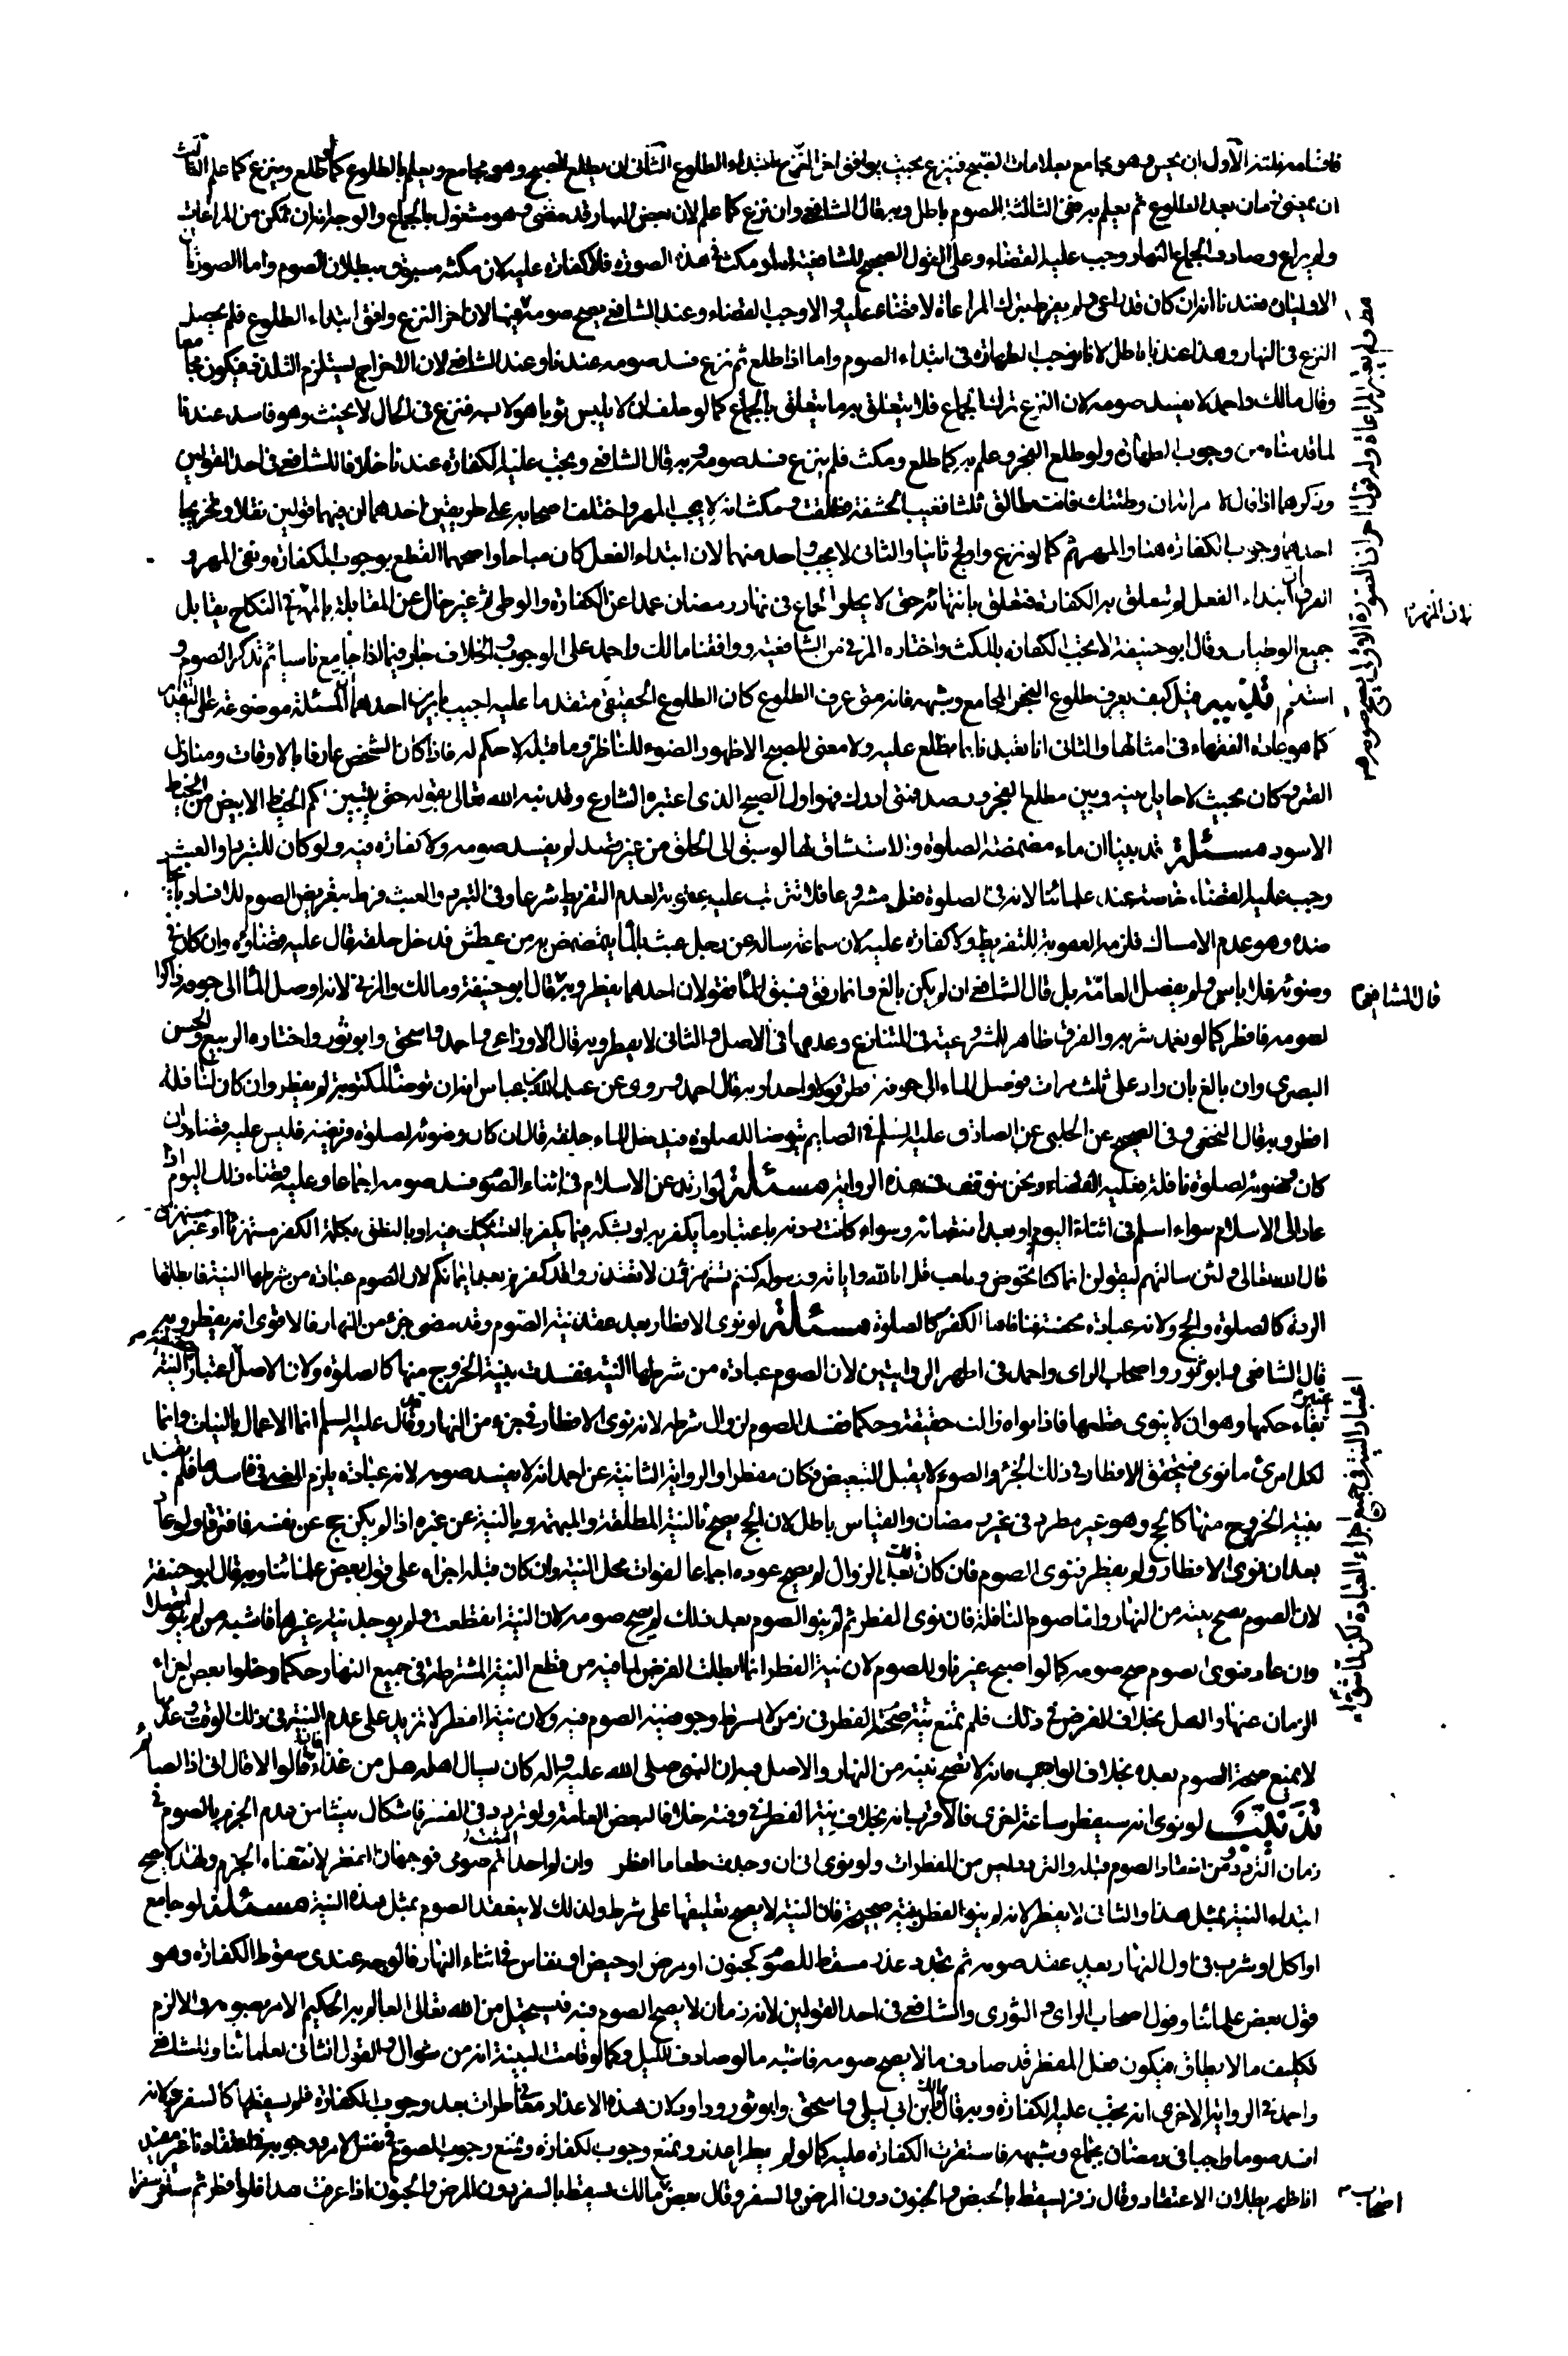 فاقسامه ثلثة الاول ان يحس وهو مجامع بعلامات الصبح فينزع بحيث يوافق اخر النزع ابتداء الطلوع الثانى ان يطلع الصبح وهو مجامع ويعلم بالطلوع كما طلع وينزع كما علم الثالث
ان يمضى زمان بعد الطلوع ثم يعلم به ففى الثالثة الصوم باطل وبه قال الشافعى وان نزع كما علم لان بعض النهار قد مضى وهو مشغول بالجماع والوجه انه ان تمكن من المراعات
ولم يراع وصادف الجماع النهار وجب عليه القضاء وعلى القول الصحيح للشافعية انه لو مكث فى هذه الصورة فلا كفارة عليه لان مكثه مسبوق ببطلان الصوم واما الصورتان
الاوليان فعندنا انه ان كان قد راعى ولم يفرط بترك المراعاة لا قضاء عليه والا وجب القضاء وعند الشافعى يصح صومه فيهما لان اخر النزع وافق ابتداء الطلوع فلم يحصل
النزع فى النهار وهذا عندنا باطل لانا نوجب الطهارة فى ابتداء الصوم واما اذا طلع ثم نزع فسد صومه عندنا وعند الشافعى لان الاخراج يستلزم التلذذ فيكون مجامعا
وقال مالك واحمد لا يفسد صومه لان النزع ترك الجماع فلا يتعلق به ما يتعلق بالجماع كما لو حلف ان لا يلبس ثوبا هو لابسه فنزع فى الحال لا يحنث وهو فاسد عندنا
لما قدمناه من وجوب الطهارة ولو طلع الفجر وعلم به كما طلع ومكث فلم ينزع فسد صومه وبه قال الشافعى ويجب عليه الكفارة عندنا خلافا للشافعى فى احد القولين
وذكرهما اذا قال لامراته ان وطئتك فانت طالق ثلثا فغيب الحشفة فطلقت ومكث انه لا يجب المهر واختلف اصحابه على طريقين احدهما ان فيهما قولين نقلا وتخريجا
احدهما وجوب الكفارة هنا والمهر ثم كما لو نزع واولج ثانيا والثانى لا يجب واحد منهما لان ابتداء الفعل كان مباحا واصحهما القطع بوجوب الكفارة ونفى المهر و
الفرق ان ابتداء الفعل لم يتعلق به الكفارة فتعلق بانتهائه حتى لا يخلو الجماع فى نهار رمضان عمدا عن الكفارة والوطى ثم غير خال عن المقابلة بالمهر لان المهر فى النكاح يقابل
جميع الوطيات وقال ابو حنيفة لا يجب الكفارة بالمكث واختاره المزنى من الشافعية ووافقنا مالك واحمد على الوجوب والخلاف جار فيما اذا جامع ناسيا ثم تذكر الصوم و
استدام تنبيه قيل كيف يعرف طلوع الفجر المجامع وشبهه فانه متى عرف الطلوع كان الطلوع الحقيقى متقدما عليه اجيب بامرين احدهما ان المسئلة موضوعة على التقدير
كما هو عادة الفقهاء فى امثالها والثانى انا تعبدنا بما نطلع عليه ولا معنى للصبح الا ظهور الضوء للناظر وما قبله لا حكم له فاذا كان الشخص عارفا بالاوقات ومنازل
القمر وكان بحيث لا حايل بينه وبين مطلع الفجر ورصد فمتى ادرك فهو اول الصبح الذى اعتبره الشارع وقد نبه الله تعالى بقوله حتى يتبين لكم الخيط الابيض من الخيط
الاسود مسئلة قد بينا ان ماء مضمضة الصلوة والاستنشاق لها لو سبق الى الحلق من غير قصد لم يفسد صومه ولا كفارة فيه ولو كان للتبرد او العبث
وجب عليه القضاء خاصة عند علمائنا لانه فى الصلوة فعل مشروعا فلا تترتب عليه عقوبة لعدم التفريط شرعا وفى التبرد والعبث فرط بتعريض الصوم للافساد بايجاد
ضده وهو عدم الامساك فلزمه العقوبة للتفريط ولا كفارة عليه لان سماعة ساله عن رجل عبث بالماء يتمضمض به من عطش فدخل حلقه قال عليه قضاؤه وان كان فى
وضوئه فلا باس ولم يفصل العامة بل قال الشافعى ان لم يكن بالغ وانما رفق فسبق الماء فقولان احدهما يفطر وبه قال ابو حنيفة ومالك والمزنى لانه اوصل الماء الى جوفه ذاكرا
لصومه فافطر كما لو تعمد شربه والفرق ظاهر للمشروعية فى المتنازع وعدمها فى الاصل والثانى لا يفطر وبه قال الاوزاعى واحمد واسحق وابو ثور واختاره الربيع والحسن
البصرى وان بالغ بان زاد على ثلث مرات فوصل الماء الى جوفه افطر قولا واحدا وبه قال احمد وروى عن عبد الله بن عباس انه ان توضأ لمكتوبة لم يفطر وان كان لنافلة
افطر وبه قال النخعى وفى الصحيح عن الحلبى عن الصادق عليه السلم فى الصايم يتوضا للصلوة فيدخل الماء حلقه قال ان كان وضوئه لصلوة فريضة فليس عليه قضاء وان
كان وضوئه لصلوة نافلة فعليه القضاء ونحن نتوقف فى هذه الرواية مسئلة لو ارتد عن الاسلام فى اثناء الصوم فسد صومه اجماعا وعليه قضاء ذلك اليوم اذا
عاد الى الاسلام سواء اسلم فى اثناء اليوم او بعد انقضائه وسواء كانت ردته باعتقاد ما يكفر به او بشكه فيما يكفر بالتشكيك فيه او بالنطق بكلمة الكفر مستهزئا او غير مستهزئ
قال الله تعالى ولئن سالتهم ليقولن انما كنا نخوض ونلعب قل ابالله واياته ورسوله كنتم تستهزؤن لا تعتذروا قد كفرتم بعد ايمانكم لان الصوم عبادة من شرطها النية فابطلتها
الردة كالصلوة والحج ولانه عبادة محضة فنافاها الكفر كالصلوة مسئلة لو نوى الافطار بعد عقد نية الصوم وقد مضى جزء من النهار فالاقوى انه يفطر وبه
قال الشافعى وابو ثور واصحاب الراى واحمد فى اظهر الروايتين لان الصوم عبادة من شرطها النية ففسدت بنية الخروج منها كالصلوة ولان الاصل اعتبار النية
بقاء حكمها وهو ان لا ينوى قطعها فاذا نواه زالت حقيقة وحكما ففسد الصوم لزوال شرطه لانه نوى الافطار فى جزء من النهار وقد قال عليه السلم انما الاعمال بالنيات وانما
لكل امرئ ما نوى فيتحقق الافطار فى ذلك الجزء والصوم لا يقبل التبعيض فكان مفطرا والرواية الثانية عن احمد انه لا يفسد صومه لانه عبادة يلزم المضى فى فاسدها فلم يفسد
بنية الخروج منها كالحج وهو غير مطرد فى غير رمضان والقياس باطل لان الحج يصح بالنية المطلقة والمبهمة وبالنية عن غيره اذا لم يكن حج عن نفسه فافترقا ولو عاد
بعد ان نوى الافطار ولم يفطر فنوى الصوم فان كان بعد الزوال لم يصح عوده اجماعا لفوات محل النية وان كان قبله اجزاه على قول بعض علمائنا وبه قال ابو حنيفة
لان الصوم يصح بنية من النهار واما صوم النافلة فان نوى الفطر ثم لم ينو الصوم بعد ذلك لم يصح صومه لان النية انقطعت ولم يوجد نية غيرها فاشبه من لم ينو اصلا
وان عاد فنوى الصوم صح صومه كما لو اصبح غير ناو للصوم لان نية الفطر انما ابطلت الفرض لما فيه من قطع النية المشترطة فى جميع النهار حكما وخلو بعض اجزاء
الزمان عنها والنفل بخلاف الفرض فى ذلك فلم تمنع صحته نية الفطر فى زمن لا يشترط وجود نية الصوم فيه ولان نية الفطر لا تزيد على عدم النية فى ذلك الوقت وعدمها
لا يمنع صحة الصوم بعده بخلاف الواجب فانه لا تصح نيته من النهار والاصل فيه ان النبى صلى الله عليه واله كان يسال اهله هل من غذاء فان قالوا لا قال انى اذا لصائم
تذنيب لو نوى انه سيفطر ساعة اخرى فالاقرب انه بخلاف نية الفطر فى وقته خلافا لبعض العامة ولو تردد فى الفطر فاشكال ينشا من عدم الجزم بالصوم فى
زمان التردد ومن انعقاد الصوم قبله والتردد ليس من المفطرات ولو نوى انى ان وجدت طعاما افطرت وان لم اجد اتم صومى فوجهان الفطر لانتفاء الجزم ولهذا لا يصح
ابتداء النية بمثل هذا والثانى لا يفطر لانه لم ينو الفطر بنية صحيحة فان النية لا يصح تعليقها على شرط ولذلك لا ينعقد الصوم بمثل هذه النية مسئلة لو جامع
او اكل او شرب فى اول النهار بعد عقد صومه ثم تجدد عذر مسقط للصوم كجنون او مرض او حيض او نفاس فى اثناء النهار فالوجه عندى سقوط الكفارة وهو
قول بعض علمائنا وقول اصحاب الراى والثورى والشافعى فى احد القولين لانه زمان لا يصح الصوم فيه فيستحيل من الله تعالى العالم به الحكيم الامر بصومه والا لزم
تكليف ما لا يطاق فيكون فعل المفطر قد صادف ما لا يصح صومه فاشبه ما لو صادف الليل وكما لو قامت البينة انه من شوال والقول الثانى لعلمائنا وللشافعى
واحمد فى الرواية الاخرى انه يجب عليه الكفارة وبه قال مالك وابن ابى ليلى واسحق وابو ثور وداود لان هذه الاعذار معان طرات بعد وجوب الكفارة فلم يسقطها كالسفر ولانه
افسد صوما واجبا فى رمضان بجماع وشبهه فاستقرت الكفارة عليه كما لو لم يطرا عذر ونمنع وجوب الكفارة ونمنع وجوب الصوم فى نفس الامر ووجوبه فى الاعتقاد غير مفيد
اذا ظهر بطلان الاعتقاد وقال زفر يسقط بالحيض والجنون دون المرض والسفر وقال بعض اصحاب مالك يسقط بالسفر دون المرض والجنون اذا عرفت هذا فلو افطر ثم سافر سفرا